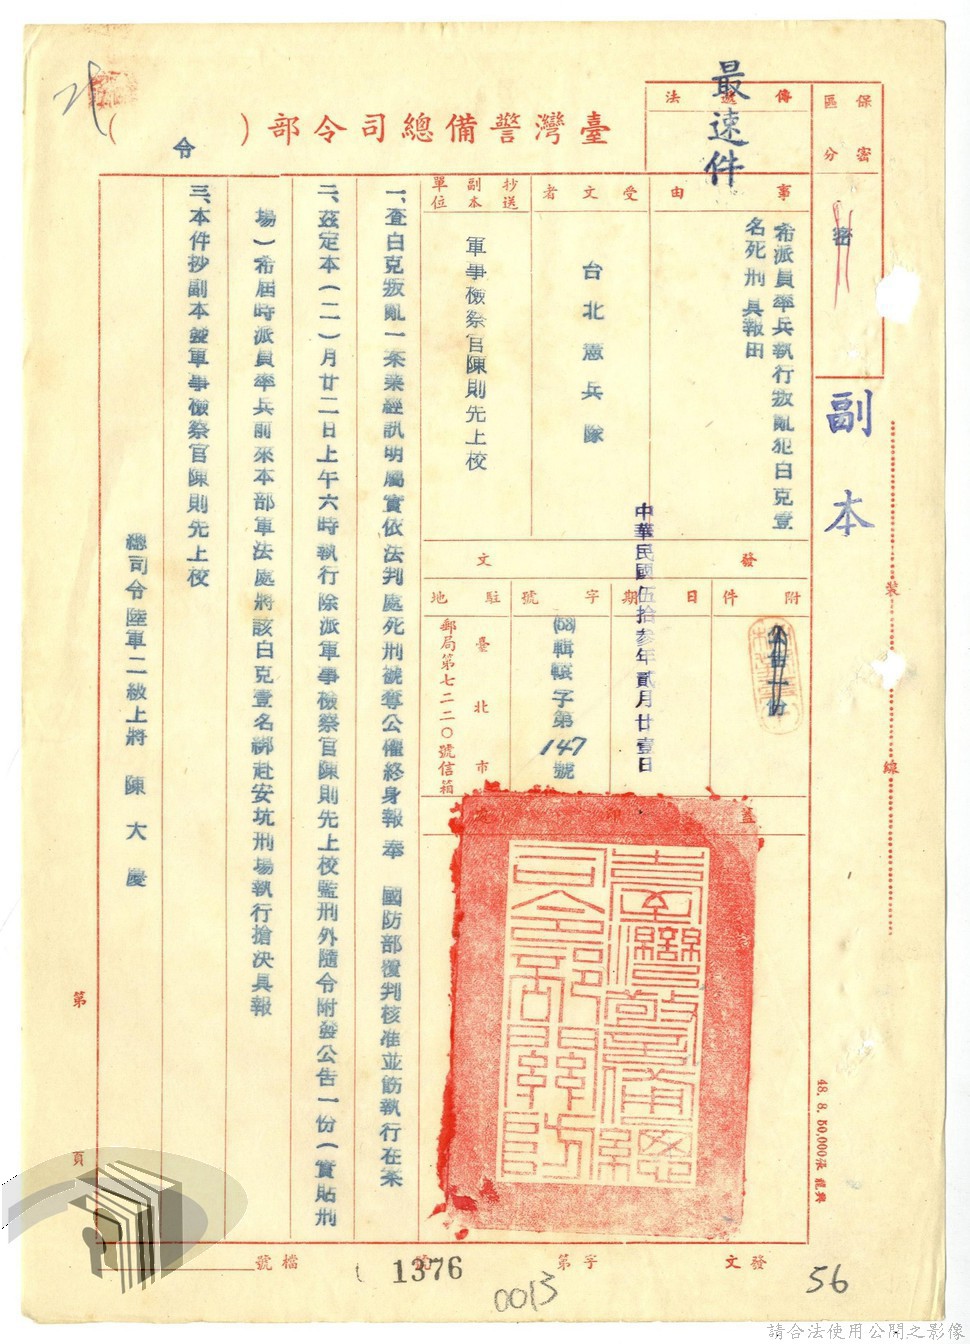 保密
區分
密
傳遞
法
最速件
臺灣警備總司令部(令)
副本
裝
線
事由
希派員率兵執行叛亂犯白克壹
名死刑具報由
受文者
台北憲兵隊
抄送
副本
單位
軍事檢察官陳則先上校
發文
附件
公告一份
日期
中華民國伍拾參年貳月廿壹日
字號
(53)輯轅字第147號
駐地
臺北市
郵局第七二二〇號信箱
蓋印
臺灣警備總司令部關防
一、查白克叛亂一案業經訊明屬實依法判處死刑褫奪公權終身報奉 國防部覆判核准並飭執行在案
二、茲定本(二)月廿二日上午六時執行除派軍事檢察官陳則先上校監刑外隨令附發公告一份(實貼刑
場)希屆時派員率兵前來本部軍法處將該白克壹名綁赴安坑刑場執行搶決具報
三、本件抄副本送軍事檢察官陳則先上校
總司令陸軍二級上將 陳大慶
第
頁
48. 8. 50,000張 龍興
發文 字第 號
檔號
1376
0013
56
請合法使用公開之影像